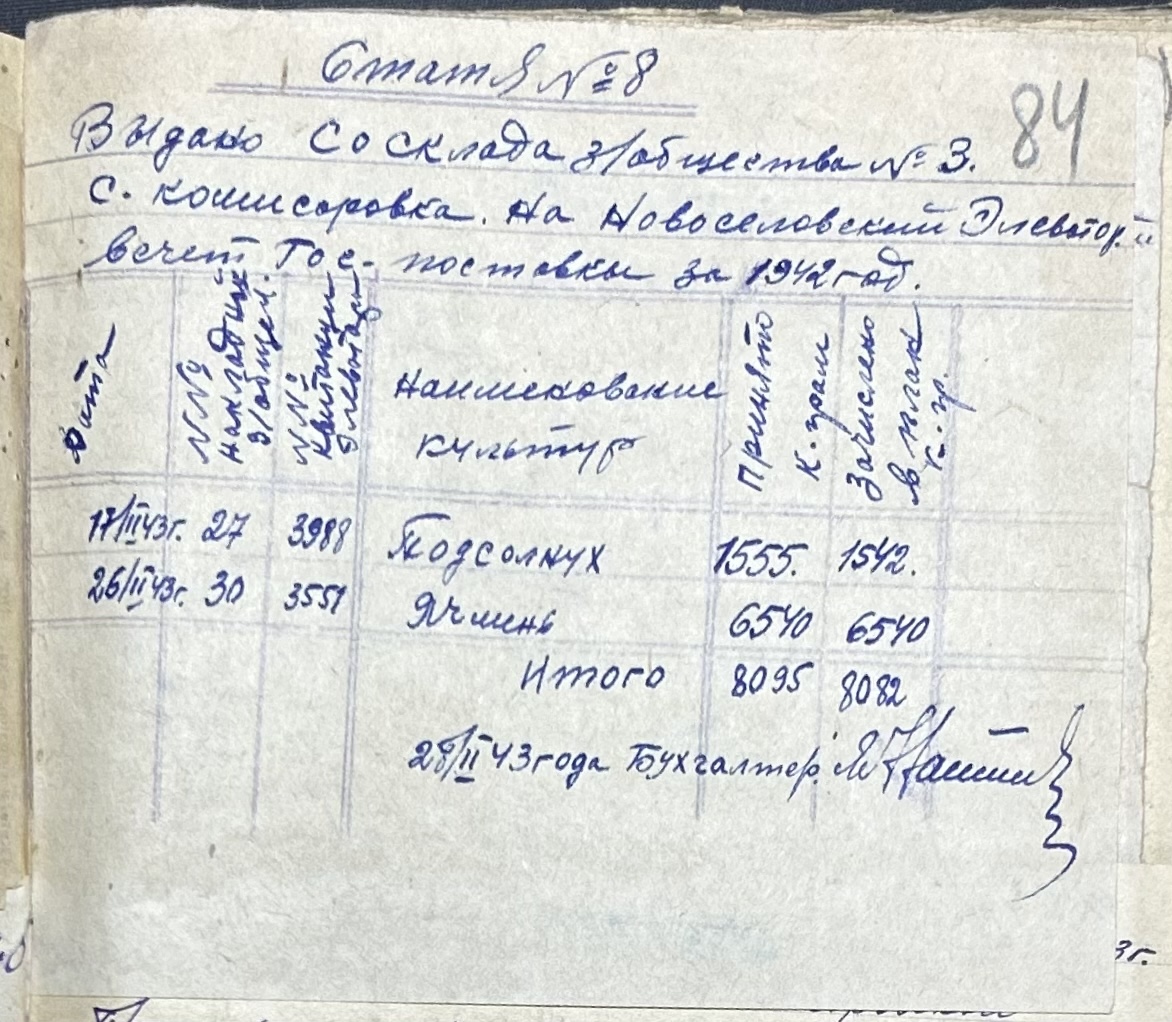 Статья №8
84
Выдано Со склада з/общества № 3.
с. комисаровка. На Новоселовский Элеватор.
вечет Гос- поставки за 1942 год.
Дата
№№ накладных з/общес.
№№ квитанции Элеватора
Наименование культур
Принято к. грам
Зачислено в план к. гр.
17/II 43г. 27 3988 Подсолнух 1555. 1542.
26/II 43г. 30 3551 Ячмень 6540 6540
Итого 8095 8082
28/II 43 года Бухгалтер.
3г.